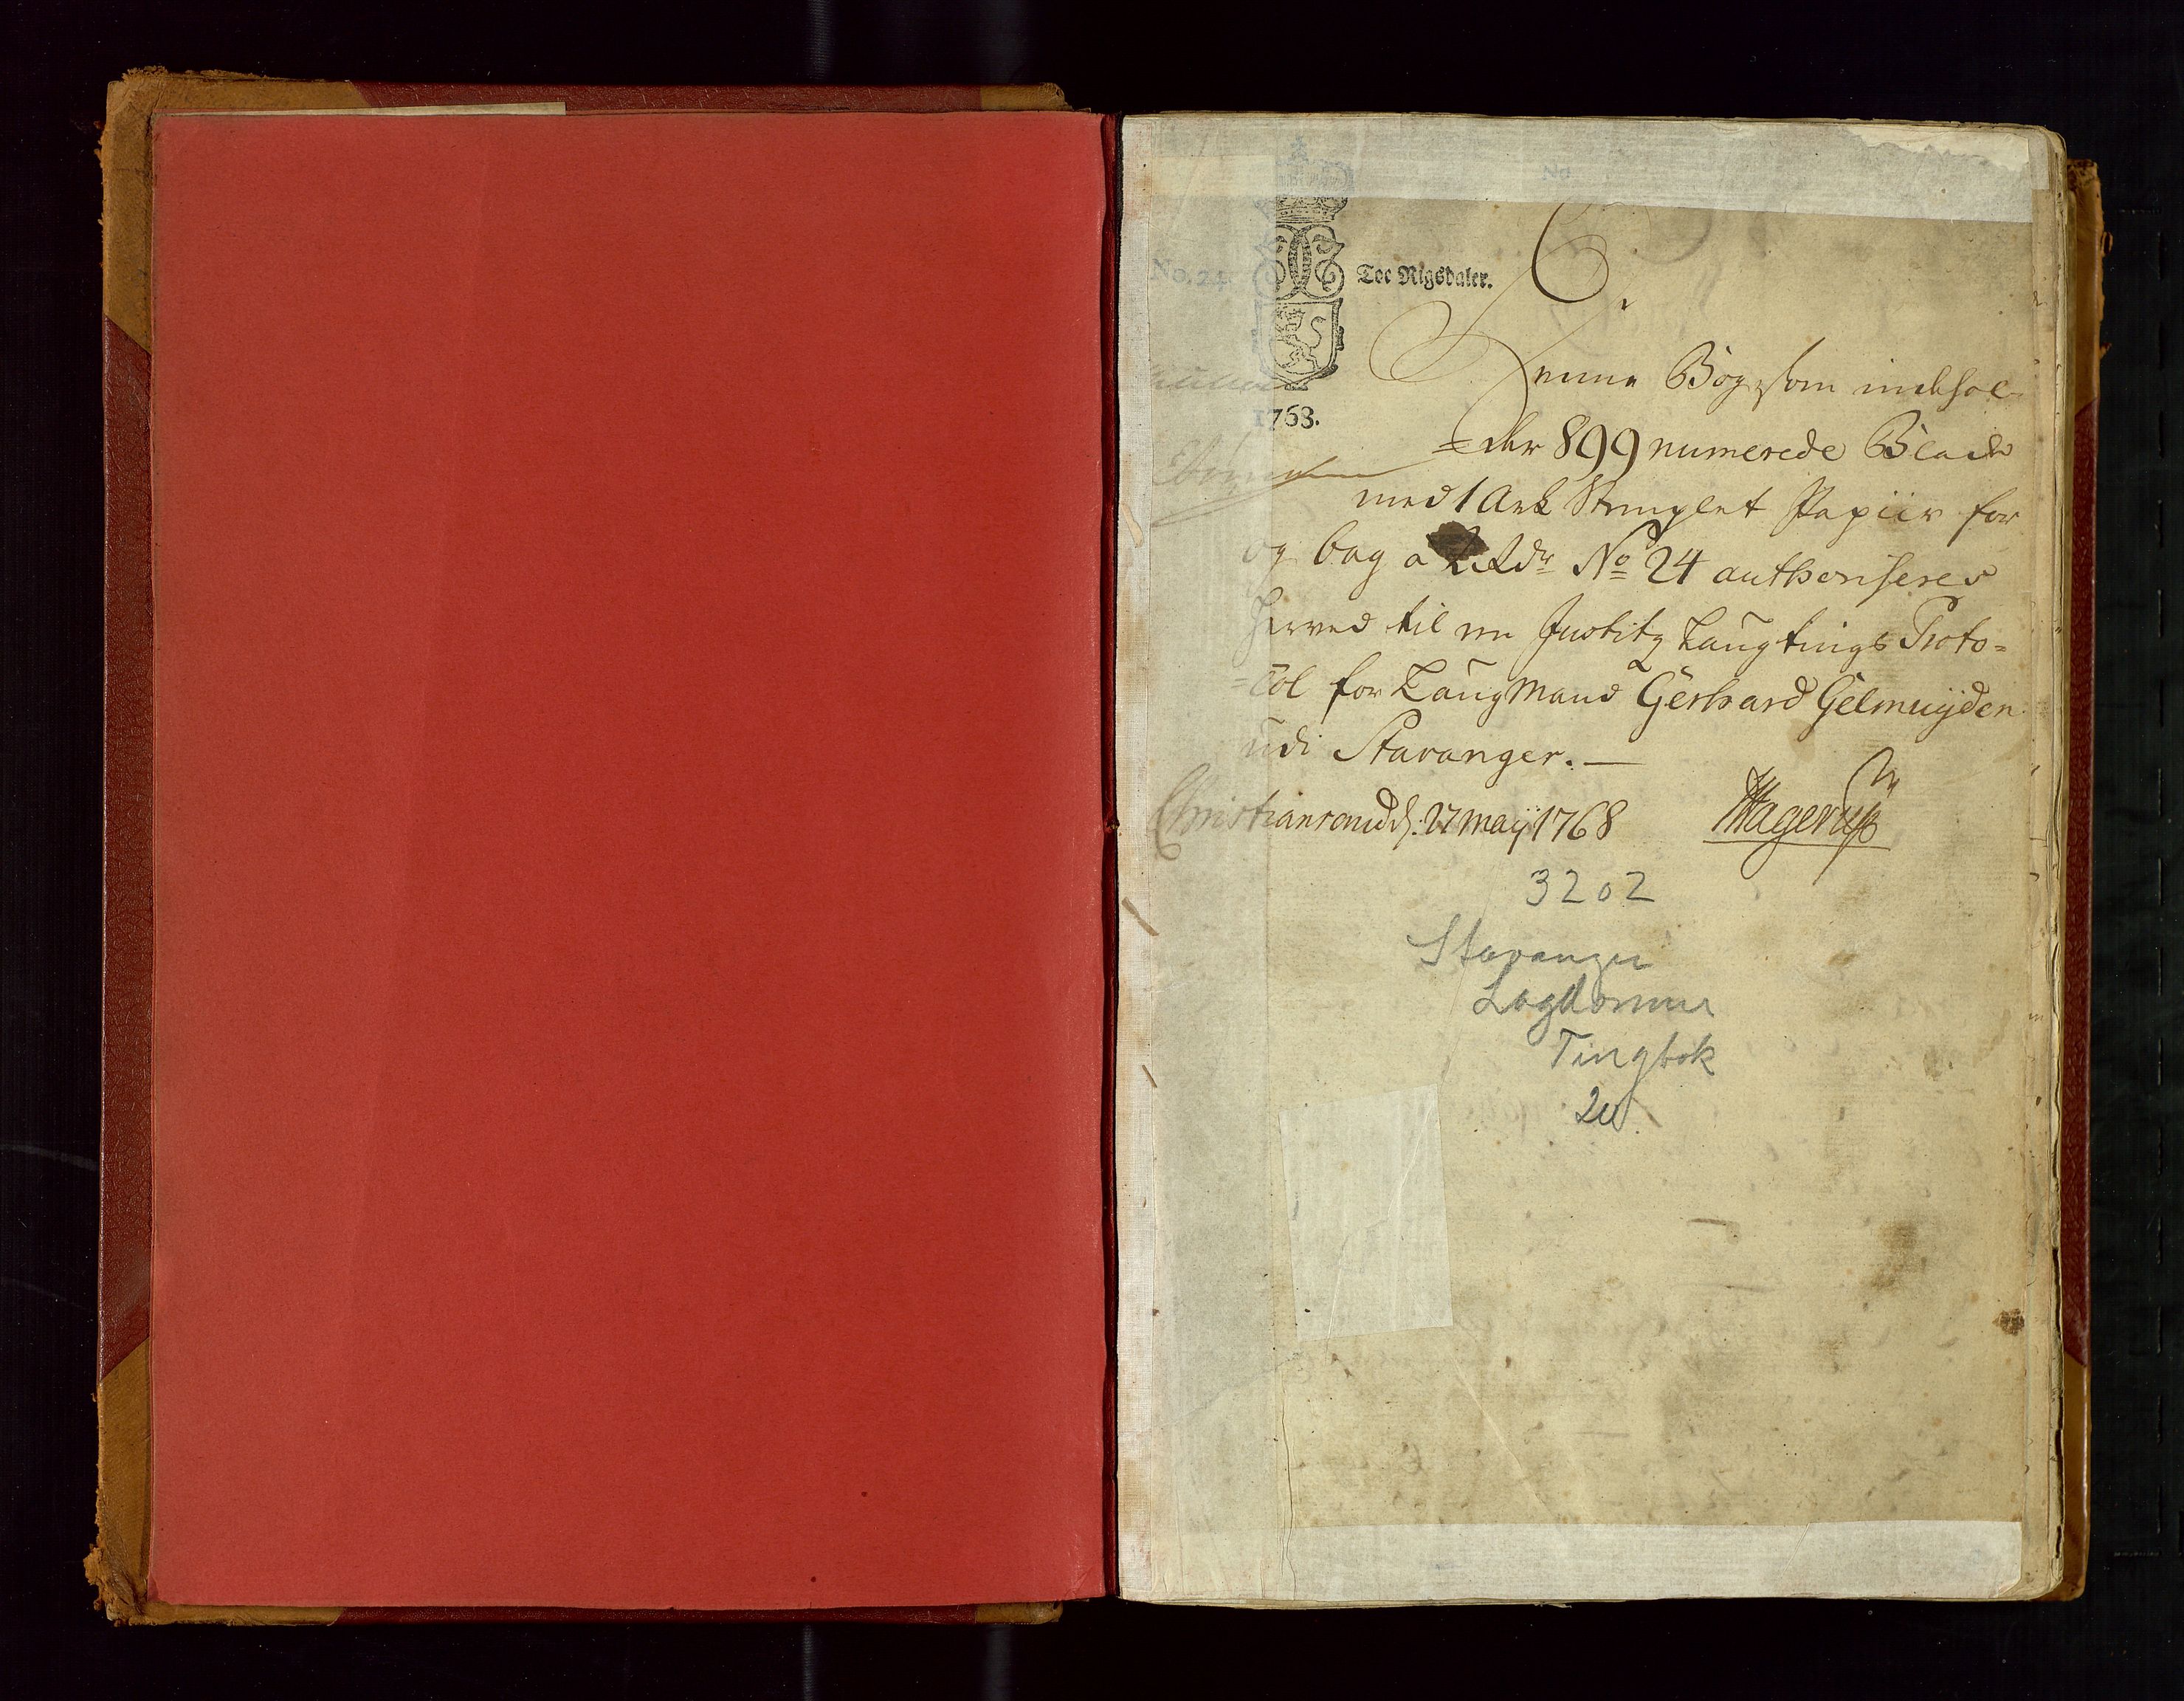 No. 24.
Toe Rigsdaler.
1763.
Denne Bog, som indehol-
=der 899 numerede Blade
med 1 Ark Stemplet Papiir for
og bag a 2 Rdr No 24 authoriseres
herved til en Justitz Laugtings Proto=
=col for Laugmand Gerhard Gelmuyden
udi Stavanger. —
Christiansand d. 27 Maij 1768 Hagerup
3202
Stavanger
Lagdømme
Tingbok